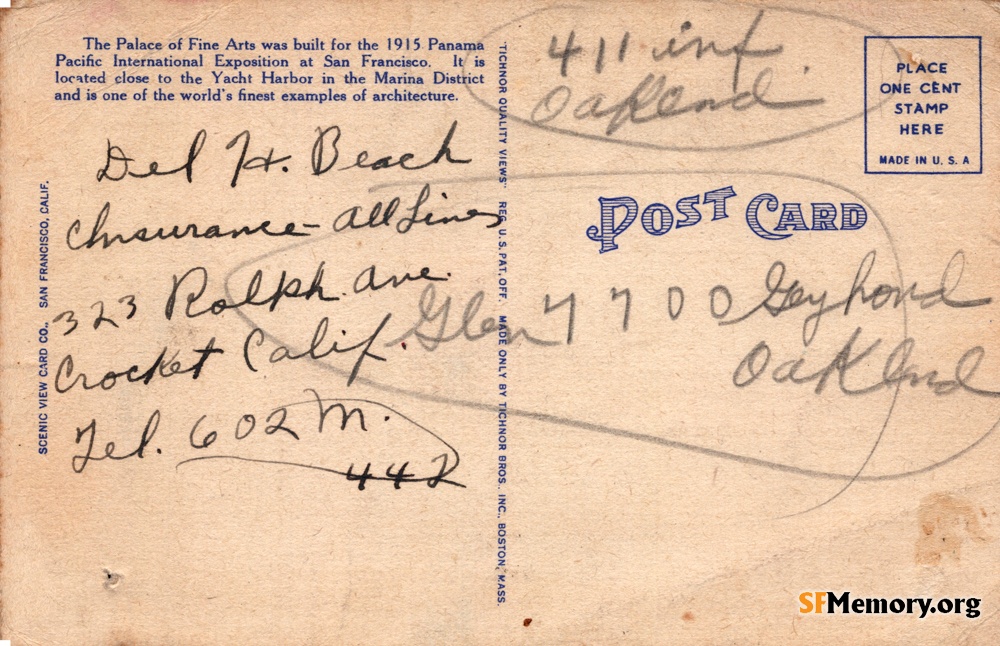 The Palace of Fine Arts was built for the 1915 Panama
Pacific International Exposition at San Francisco. It is
located close to the Yacht Harbor in the Marina District
and is one of the world's finest examples of architecture.
Del H. Beach
Insurance - All Lines
323 Rolph Ave.
Crocket Calif.
Tel. 602 M.
442
SCENIC VIEW CARD CO., SAN FRANCISCO, CALIF.
"TICHNOR QUALITY VIEWS" REG. U. S. PAT. OFF. MADE ONLY BY TICHNOR BROS., INC., BOSTON, MASS.
411 inf
Oakland
PLACE
ONE CENT
STAMP
HERE
MADE IN U. S. A
POST CARD
Glen 7700 Geyhond
Oakland
SFMemory.org